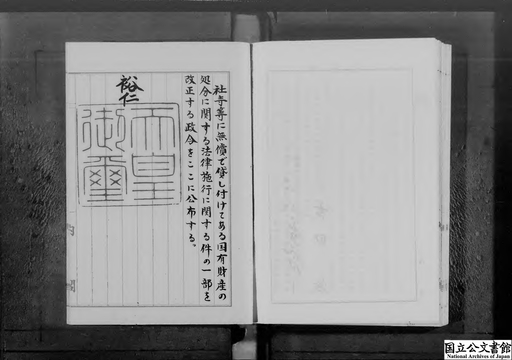 社寺等に無償で貸し付けてある国有財産の
処分に関する法律施行に関する件の一部を
改正する政令をここに公布する。
裕仁
天皇
御璽
国立公文書館
National Archives of Japan